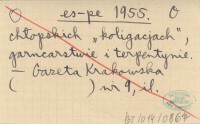 O es-pe 1955. O
chłopskich „koligacjach",
garncarstwie i terpentynie.
– Gazeta Krakowska
( ) nr 9, il.